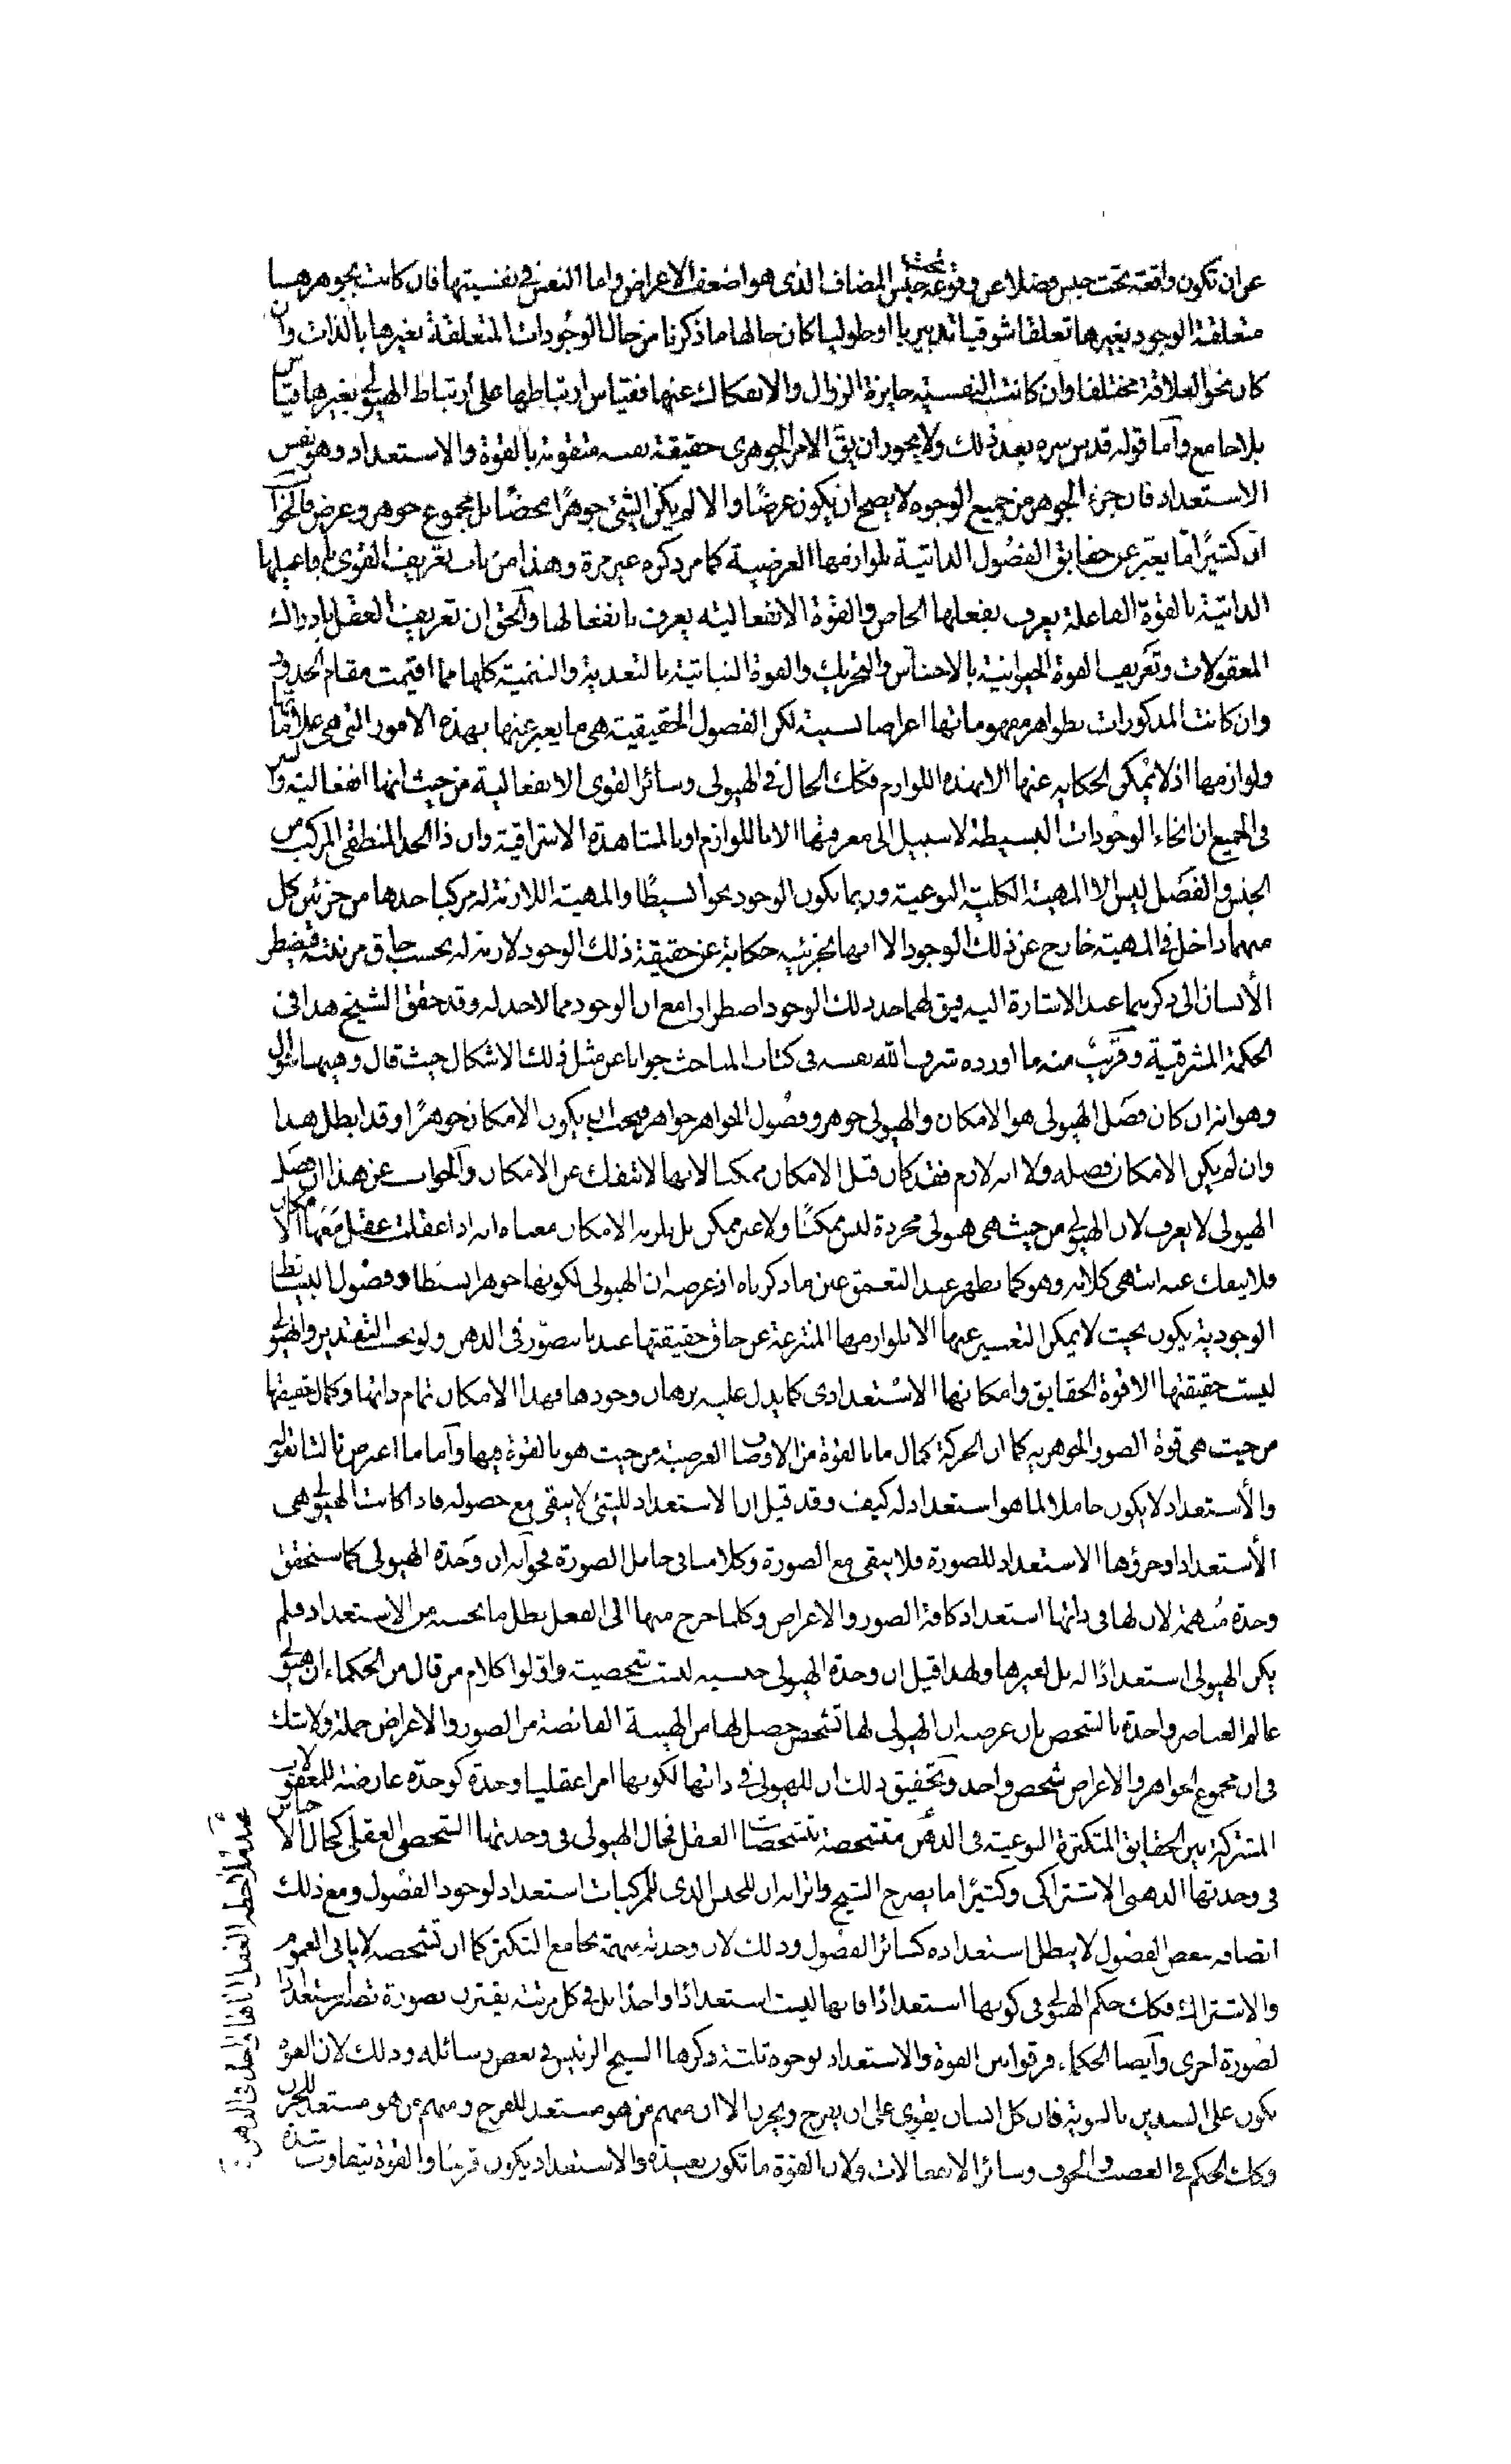 عن ان تكون واقعة تحت جنس فضلا عن وقوعه تحت جنس المضاف الذى هو اضعف الاعراض واما النفس فى نفسيتها فان كانت بجوهرها
متعلقة الوجود بغيرها تعلقا شوقيا تدبيريا او حلوليا كان حالها ما ذكرنا من حال الوجودات المتعلقة بغيرها بالذات وان
كان نحو العلاقة مختلفا وان كانت النفسية جايزة الزوال والانفكاك عنها فقياس ارتباطها على ارتباط الهيولى بغيرها قياس
بلا جامع وآما قوله قدس سره بعد ذلك ولا يجوز ان يق الامر الجوهرى حقيقة نفسه متقومة بالقوة والاستعداد وهو نفس
الاستعداد فان جزء الجوهر من جميع الوجوه لا يصح ان يكون عرضًا والا لم يكن الشئ جوهرًا محضًا بل مجموع جوهر وعرض فالجوآ
ان كثيرًا مّا يعبّر عن حقايق الفصُول الذاتية بلوازمها العرضية كما مر ذكره غير مرة وهذا من باب تعريف القوى بافاعيلها
الذاتية فالقوة الفاعلة يعرف بفعلها الخاص والقوة الانفعالية يعرف بانفعالها والحق ان تعريف العقل بادراك
المعقولات وتعريف القوة الحيوانية بالاحساس والتحريك والقوة النباتية بالتغدية والتنمية كلها مما اقيمت مقام الحدود
وان كانت المذكورات بظواهر مفهوماتها اعراضا نسبية لكن الفصول الحقيقية هى ما يعبر عنها بهذه الامور التى هى علاماتها
ولوازمها اذ لا يمكن الحكاية عنها الا بهذه اللوازم فكك الحال فى الهيولى وسائر القوى الانفعالية من حيث انها انفعالية والسر
فى الجميع ان انحاء الوجودات البسيطة لا سبيل الى معرفتها الا باللوازم او بالمشاهدة الاشراقية وان ذا الحد المنطقى المركب من
الجنس والفصَل ليس الا المهية الكلية النوعية وربما يكون الوجود نحوا بسيطًا والمهية اللازمة له مركبا حدها من جزئين كل
منهما داخل فى المهية خارج عن ذلك الوجود الا انها بجزئيه حكاية عن حقيقة ذلك الوجود لازمة له بحسب حاق مرتبته فيضطر
الأنسان الى ذكرهما عند الاشارة اليه فيق لهما حد ذلك الوجود اضطرارا مع ان الوجود مما لا حد له وقد حقق الشيخ هذا فى
الحكمة المشرقية وقَريبٌ منه ما اورده شرف الله نفسه فى كتاب المباحث جوابا عن مثل ذلك الاشكال حيث قال وهيهنا سؤال
وهو انه ان كان فصَل الهيولى هو الامكان والهيولى جوهر وفصُول الجواهر جواهر فيجب ان يكون الامكان جوهرًا وقد ابطل هذا
وان لم يكن الامكان فصله ولا انه لازم فقد كان قبل الامكان ممكنا لانها لا تنفك عن الامكان وآلجواب عن هذا ان فصَل
الهيولى لا يعرف لان الهيولى من حيث هى هيولى مجردة ليس ممكنًا ولا غير ممكن بل يلزمه الامكان معناه انه اذا عقلت عقل معها الامكان
فلا ينفك عنه انتهى كلامه وهو كما يظهر عند التعمق عين ما ذكرناه اذ غرضه ان الهيولى لكونها جوهرا بسيطا وفصُول البسائط
الوجودية يكون بحيث لا يمكن التعبير عنها الا بلوازمها المنتزعة عن حاق حقيقتها عندما يتصوّر فى الذهن ولو بحسب التقدير والهيولى
ليست حقيقتها الا قوة الحقايق وامكانها الاسْتعدادى كما يدل عليه برهان وجودها فهذا الامكان تمام ذاتها وكمال حقيقتها
من حيث هى قوة الصور الجوهرية كما ان الحركة كمال ما بالقوة من الاوصاف العرضية من حيث هو بالقوة فيها وآما ما اعترض ثالثا بقوله
والأستعداد لا يكون حاملا لما هو استعداد له كيف وقد قيل ان الاستعداد للشئ لا يبقى مع حصوله فاذا كانت الهيولى هى
الأستعداد او جزؤها الاستعداد للصورة فلا يبقى مع الصورة وكلامنا فى حامل الصورة فجوآبه ان وحَدة الهيولى كما سنحقق
وحدة مُبهمة لان لها فى ذاتها استعداد كافة الصور والاعراض وكلما خرج منها الى الفعل بطل ما بحسبه من الاستعداد فلم
يكن الهيولى استعدادًا له بل لغيرها ولهذا قيل ان وحدة الهيولى جنسيه ليست شخصية واوّلوا كلام من قال من الحكماء ان هيولى
عالم العناصر واحدة بالشخص بان غرضه ان الهيولى لها تشخص حصل لها من الهيئة الفائضة من الصور والاعراض جملة ولا شك
فى ان مجموع الجواهر والاعراض شخص واحد وتحقيق ذلك ان للهيولى فى ذاتها لكونها امرا عقليا وحدة كوحدة عارضة للمعقولات
المشتركة بين الحقايق المتكثرة النوعية فى الذهن متشخصة بتشخصات العقل فحال الهيولى فى وحدتها التشخصى العقلى كحال الاجناس
فى وحدتها الذهنى الاشتراكى وكثيرًا ما يصرح الشيخ واترابه ان للجنس الذى للمركبات استعداد لوجود الفصُول ومع ذلك
اتصافه ببعض الفصُول لا يبطل استعداده كسائر الفصُول وذلك لان وحدته مبهمة يجامع التكثر كما ان تشخصه لا يابى العموم
والاشتراك فكك حكم الهيولى فى كونها استعدادًا فانها ليست استعدادًا واحدًا بل فى كل مرتبة يقترن بصورة تصير استعدادا
لصُورة اخرى وآيضا الحكماء فرقوا بين القوة والاستعداد بوجوه ثلثة ذكرها الشيخ الرئيس فى بعض رسائله وذلك لان القوة
يكون على الضدين بالسوية فان كل انسان يقوى على ان يفرح ويحزن الا ان منهم من هو مستعد للفرح ومنهم من هو مستعد للحزن
وكك الحكم فى الغضب والخوف وسائر الانفعالات ولان القوة ما تكون بعيدة والاستعداد يكون قريبًا والقوة يتفاوت شدة
عند ملاحظة العقل اياها واحد فى الذهن